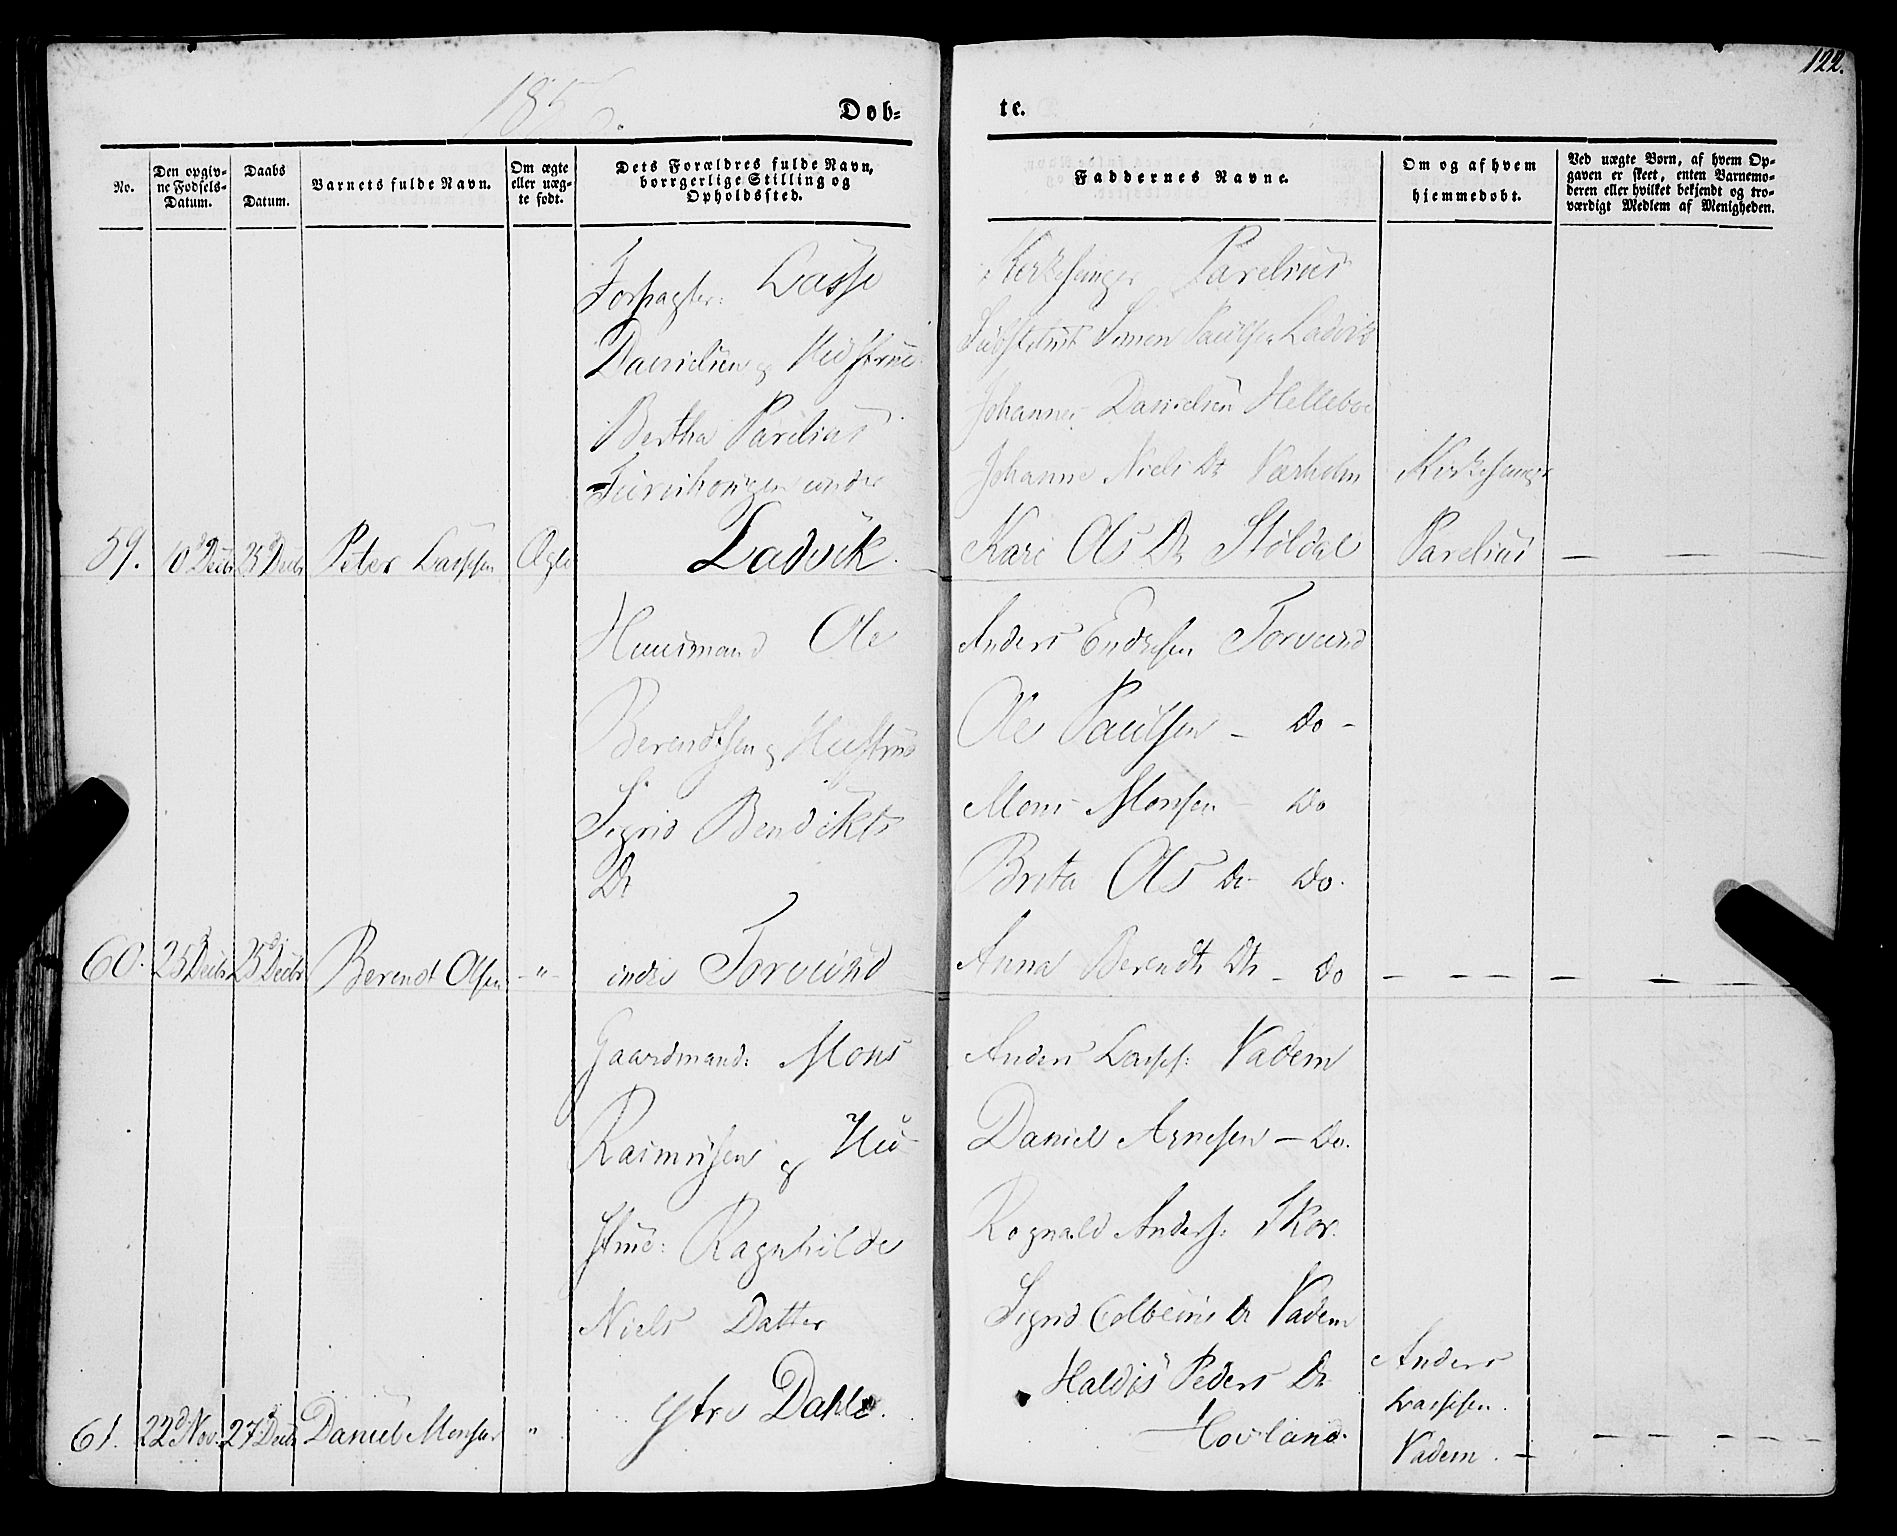 122.
185
Døb=
te.
No.
Den opgiv-
ne Fødsels-
Datum.
Daabs
Datum.
Barnets fulde Navn.
Om ægte
eller uæg-
te født.
Dets Forældres fulde Navn,
borrgerlige Stilling og
Opholdssted.
Faddernes Navne.
Om og af hvem
hjemmedøbt.
Ved uægte Børn, af hvem Op-
gaven er skeet, enten Barnemo-
deren eller hvilket bekjendt og tro-
værdigt Medlem af Menigheden.
59.
10 Decbr
25 Decbr
Peter Lassesen
Ægte
Forpagter: Lasse
Danielsen og Hustrue
Bertha Parelius
under
Ladvik.
Kirkesanger Parelius
Substitut Simon Paulsen Ladvik
Johannes Danielsen Helleboe
Johanne Niels Dr Værholm
Kari Ols Dr Støldal
Kirkesanger
Parelius
— — —
60.
25 Decbr
25 Decbr
Berendt Olsen
- " -
Huusmand Ole
Berendtsen og Hustrue
Sigrid Bendikts
Dr
indre Torvund
Anders Endresen Torvund
Ole Paulsen - Do -
Mons Monsen - Do
Brita Ols Dr - Do.
Anna Berendts Dtr - Do
- - - - - - -
61.
22d Nov.
27d Decbr
Daniel Monsen
"
Gaardmand: Mons
Rasmusen og Hu-
strue: Ragnhilde
Niels Datter
ytre Dahle.
Anders Lasses: Vadem
Daniel Arnesen — Do.
Rognald Anders: Skor.
Sigrid Colbeins Dr Vadem
Haldis Peders Dr
Hovland.
Anders
Lassesen.
Vadem. -
- - - - -